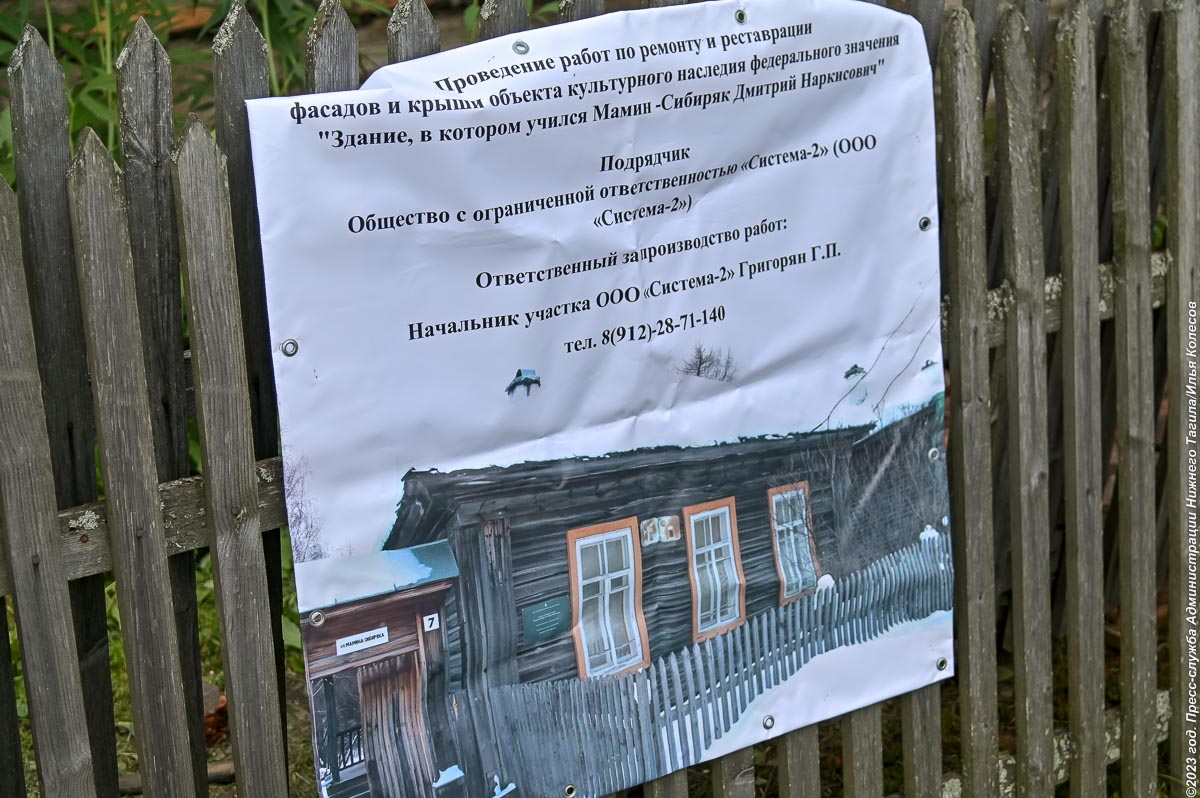 Проведение работ по ремонту и реставрации
фасадов и крыши объекта культурного наследия федерального значения
"Здание, в котором учился Мамин -Сибиряк Дмитрий Наркисович"
Подрядчик
Общество с ограниченной ответственностью «Система-2» (ООО
«Система-2»)
Ответственный за производство работ:
Начальник участка ООО «Система-2» Григорян Г.П.
тел. 8(912)-28-71-140
ул МАМИНА СИБИРЯКА
7
©2023 год. Пресс-служба Администрации Нижнего Тагила/Илья Колесов